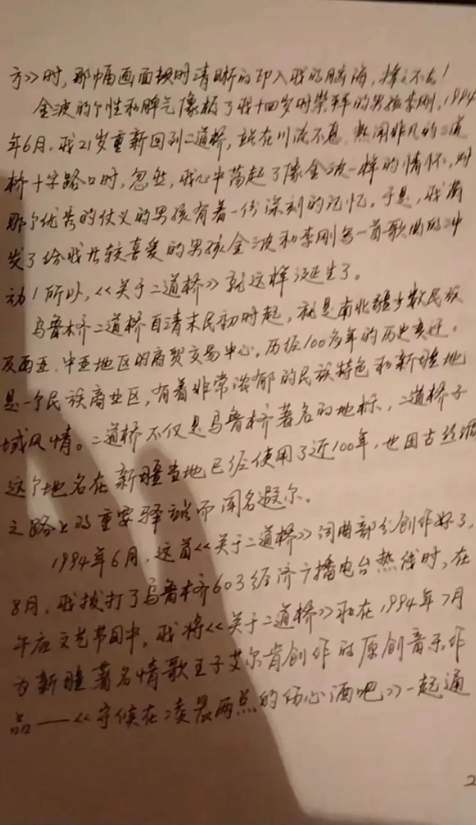 方>>时,那幅画面顿时清晰的印入我的脑海,挥之不去!
金波的个性和脾气像极了我十四岁时崇拜的男孩李刚,1994
年6月,我21岁重新回到二道桥,站在川流不息、热闹非凡的二道
桥十字路口时,忽然,我心中荡起了像金波一样的情怀,对
那个优秀的仗义的男孩有着一份深刻的记忆。于是,我萌
发了给我比较喜爱的男孩金波和李刚写一首歌曲的冲
动!所以,<<关于二道桥>>就这样诞生了。
乌鲁木齐二道桥自清末民初时起,就是南北疆少数民族
及西亚、中亚地区的商贸交易中心,历经100多年的历史变迁。
是一个民族商业区,有着非常浓郁的民族特色和新疆地
域风情。二道桥不仅是乌鲁木齐著名的地标,二道桥子
这个地名在新疆当地已经使用了近100年,也因古丝绸
之路上的重要驿站而闻名遐尔。
1994年6月,这首<<关于二道桥>>词曲部分创作好了,
8月,我拨打了乌鲁木齐603经济广播电台热线时,在
午后文艺节目中,我将<<关于二道桥>>和在1994年7月
为新疆著名情歌王子艾尔肯创作的原创音乐作
品——<<守候在凌晨两点的伤心酒吧>>一起通
2